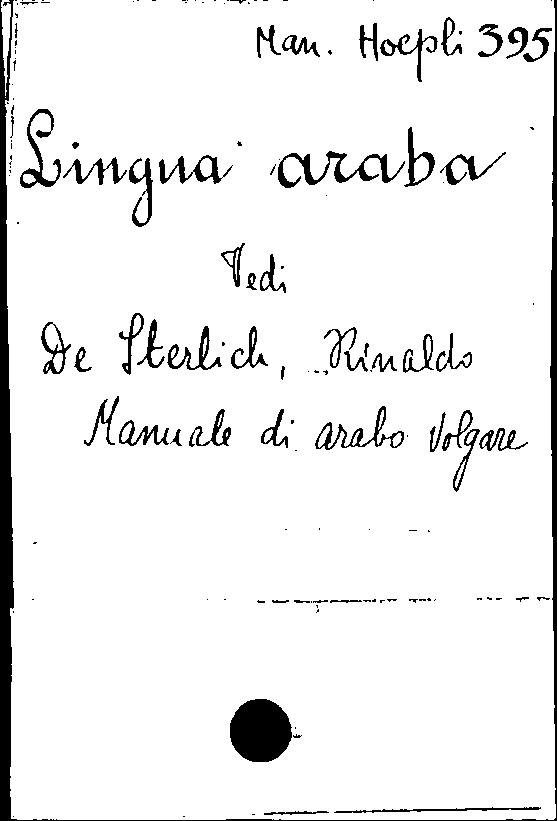 Man. Hoepli 395
Lingua araba
Vedi
De Sterlich, Rinaldo
Manuale di arabo volgare